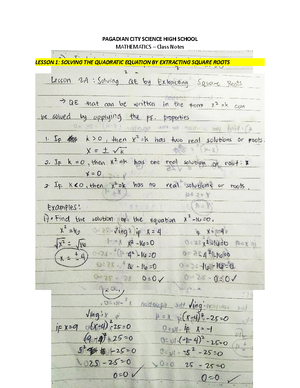 PAGADIAN CITY SCIENCE HIGH SCHOOL
MATHEMATICS – Class Notes
LESSON 1: SOLVING THE QUADRATIC EQUATION BY EXTRACTING SQUARE ROOTS
Lesson 2A: Solving QE by Extracting Square Root
→ QE that can be written in the form x²=k can
be solved by applying the ff. properties
1. If k>0, then x²=k has two real solutions or roots:
x = ± √k
2. If k=0, then x²=k has one real solution or root:
x=0
3. If k<0, then x²=k has no real solutions or roots.
Examples:
1) Find the solution of the equation x²-16=0.
x²=16
√x² = √16
x = ±4
if x=4
x²-16=0
4²-16=0
16-16=0
0=0 ✓
if x=9
(x-4)²-25=0
(9-4)²-25=0
5²-25=0
25-25=0
0=0 ✓
if x=-1
(x-4)²-25=0
(-1-4)²-25=0
-5²-25=0
25-25=0
0=0 ✓